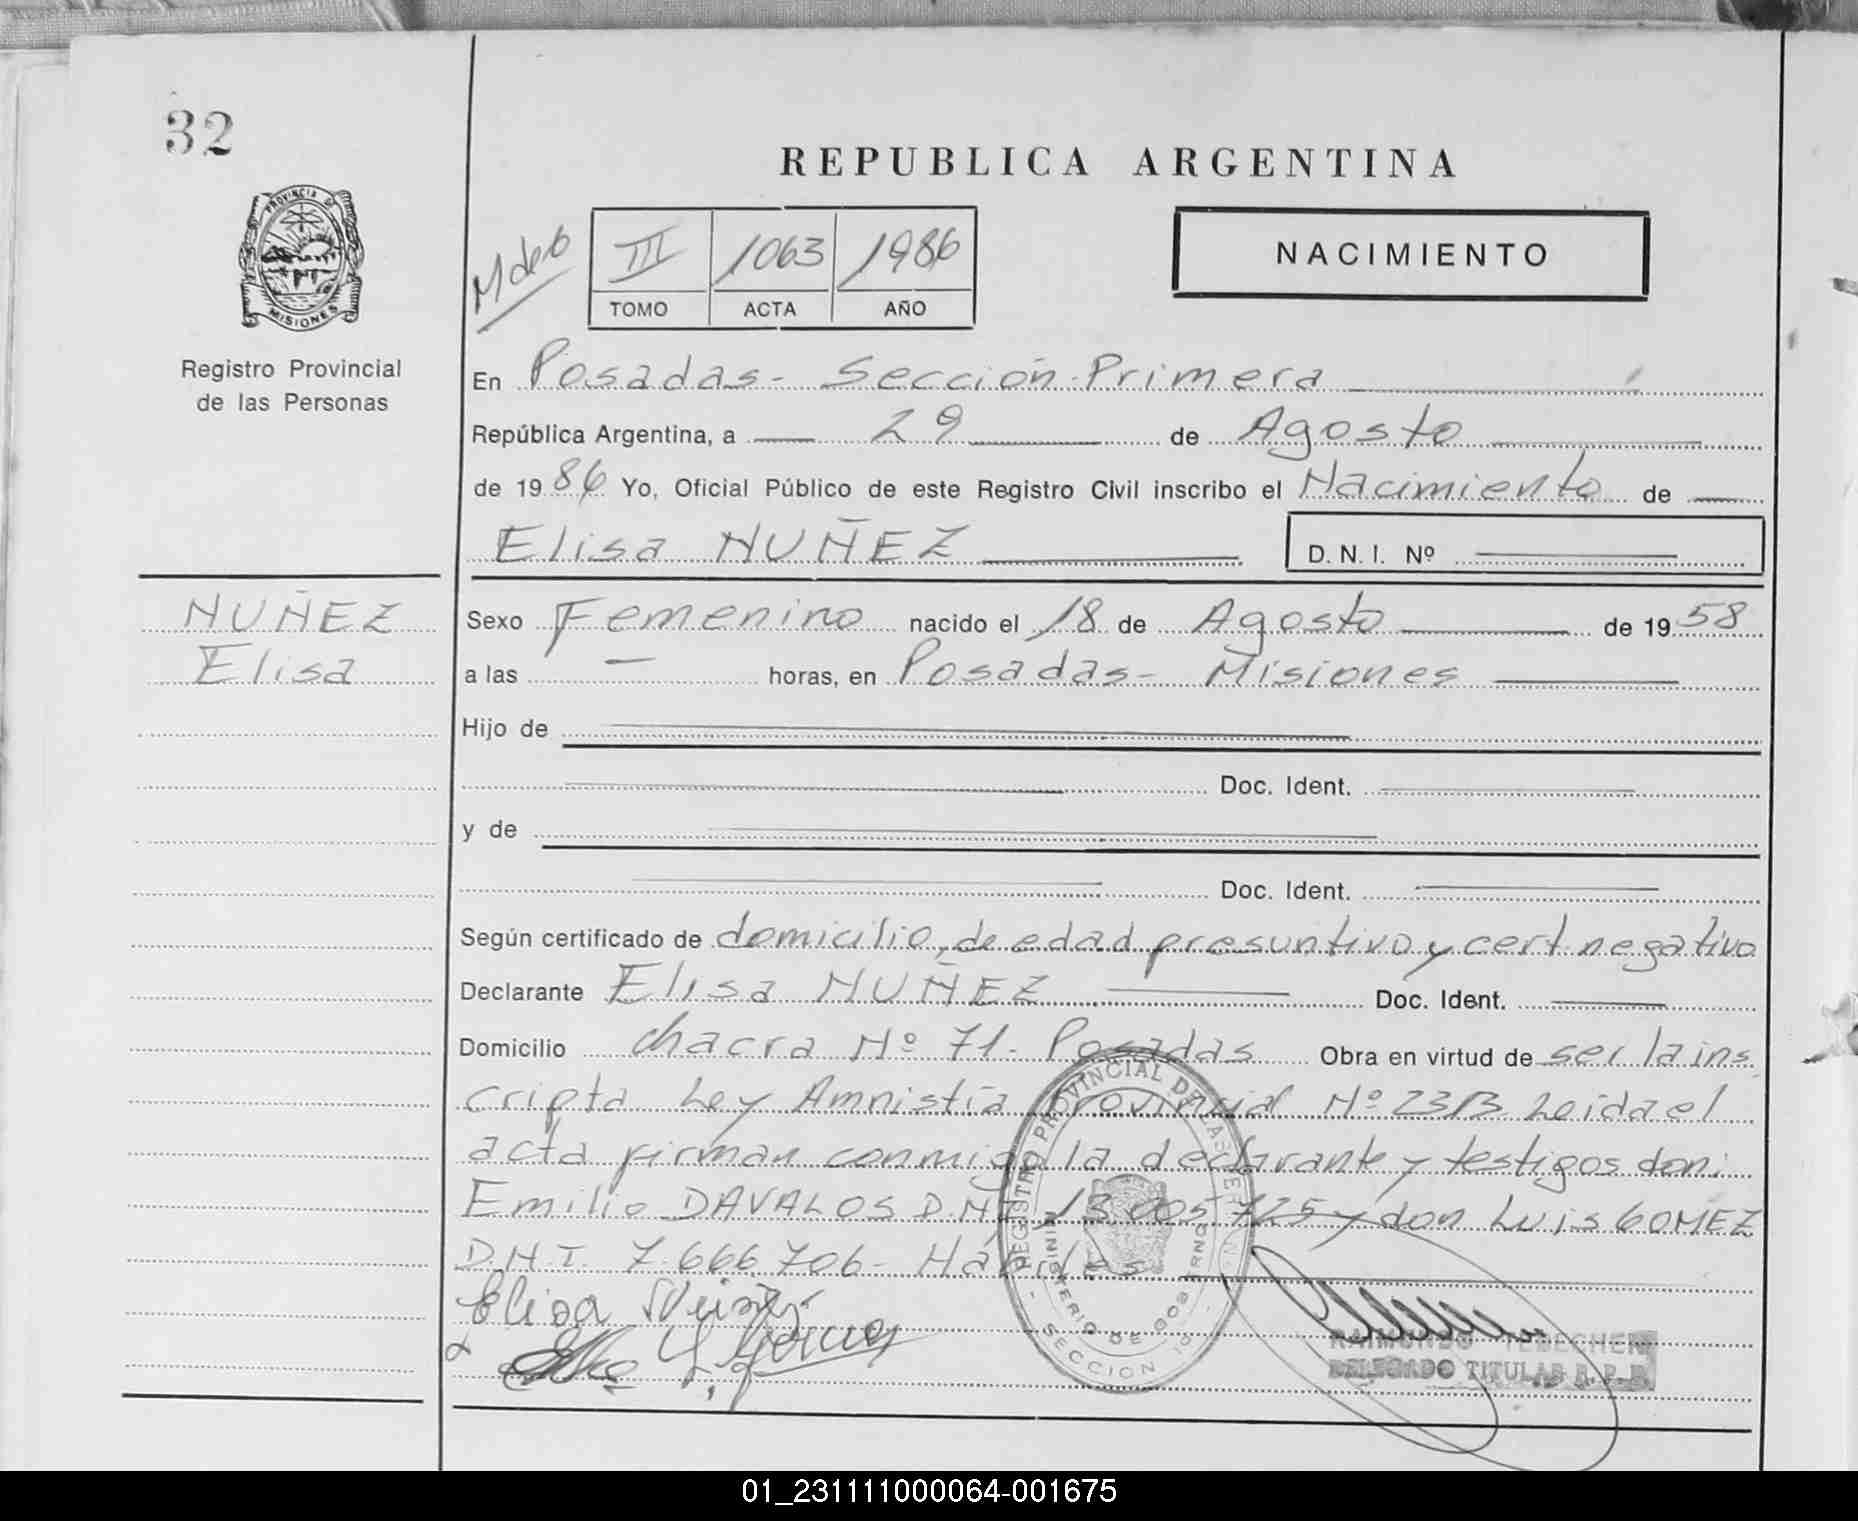 32
PROVINCIA DE
MISIONES
Registro Provincial
de las Personas
REPUBLICA ARGENTINA
III 1063 1986
TOMO ACTA AÑO
NACIMIENTO
En Posadas- Sección Primera
República Argentina, a 29 de Agosto
de 1986 Yo, Oficial Público de este Registro Civil inscribo el Nacimiento de
Elisa NUÑEZ D.N.I. Nº
NUÑEZ
Elisa
Sexo Femenino nacido el 18 de Agosto de 1958
a las — horas, en Posadas- Misiones
Hijo de
Doc. Ident.
y de
Doc. Ident.
Según certificado de domicilio, de edad presuntiva y cert negativo
Declarante Elisa NUÑEZ Doc. Ident.
Domicilio chacra Nº 71- Posadas Obra en virtud de ser la ins
cripta Ley Amnistía Provincial Nº 2313 Leida el
acta firman conmigo la declarante y testigos don:
Emilio DAVALOS D.N.I. 13.005.725 y don Luis GOMEZ
D.N.I. 7.666.706- Hábiles
REGISTRO PROVINCIAL DE LAS PERSONAS
MINISTERIO DE GOBIERNO
SECCION 1º
RAIMUNDO TEBECHERI
DELEGADO TITULAR R. P. P.
01_231111000064-001675